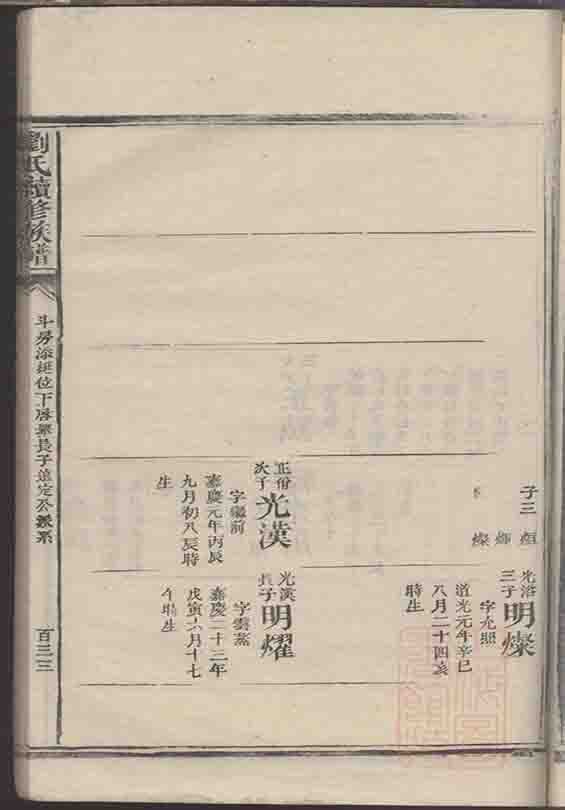 子三
烜
輝
燦
光浴三子
明燦
字允照
道光元年辛巳
八月二十四亥
時生
正份次子
光漢
字繼前
嘉慶元年丙辰
九月初八辰時
生
光漢長子
明耀
字雲蒸
嘉慶二十三年
戊寅六月十七
午時生
劉氏續修族譜
斗房添綎位下啓翠長子遠定公
系
百三三